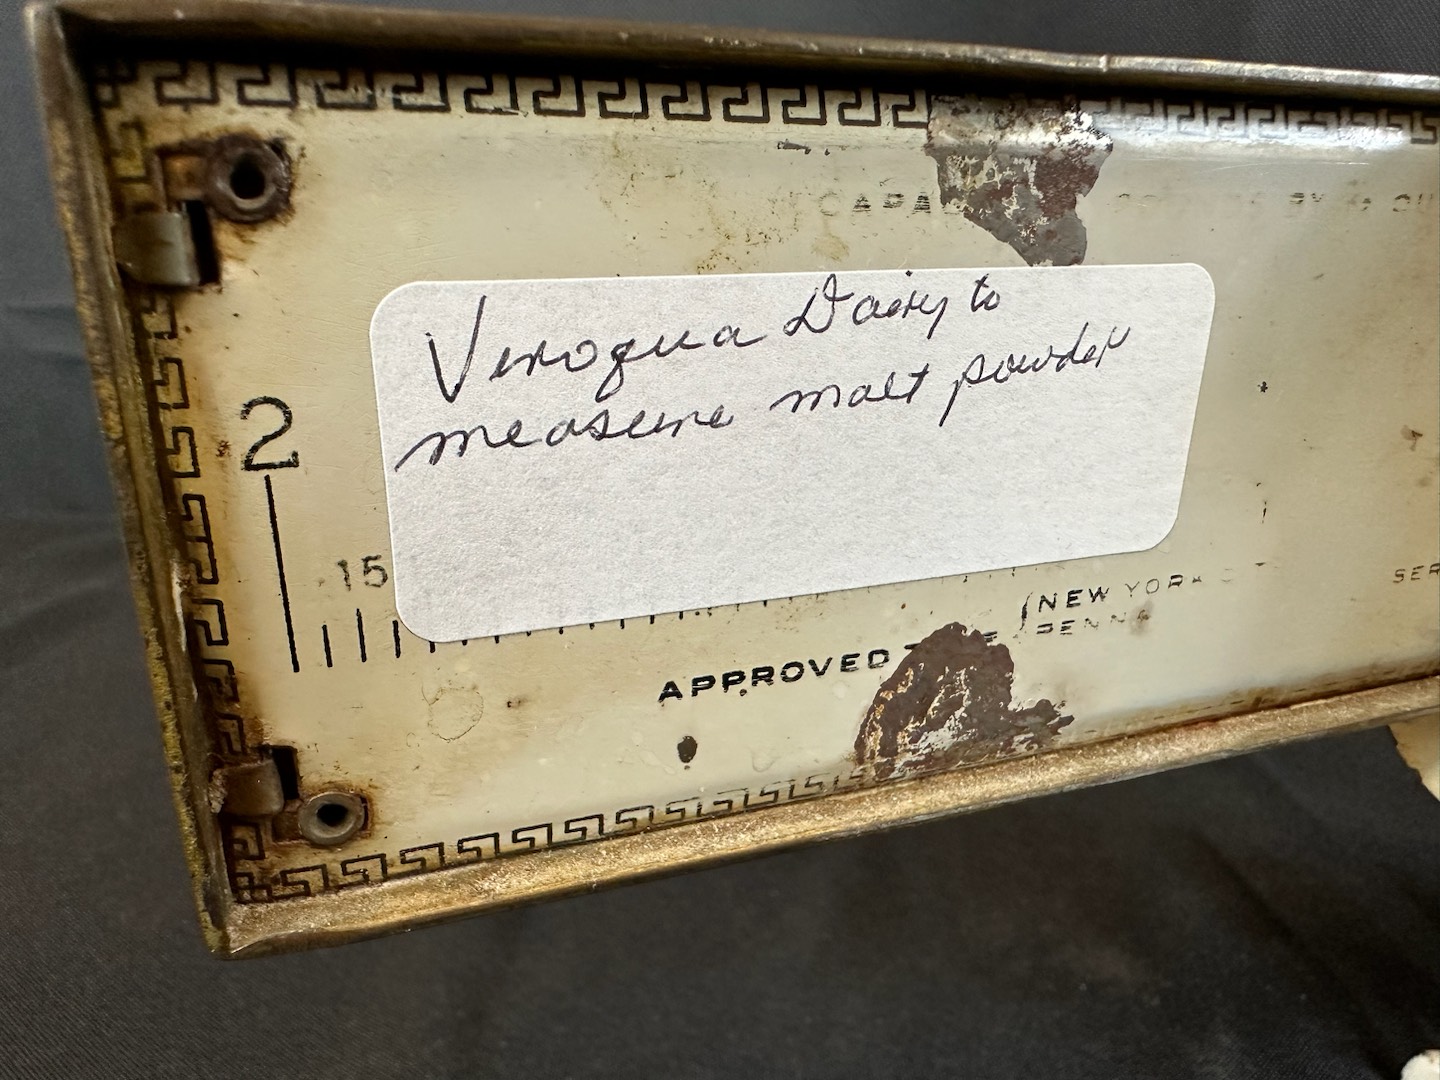 CAPA
BY
Viroqua Dairy to
measure malt powder
2
15
NEW YORK
SER
PENNA
APPROVED